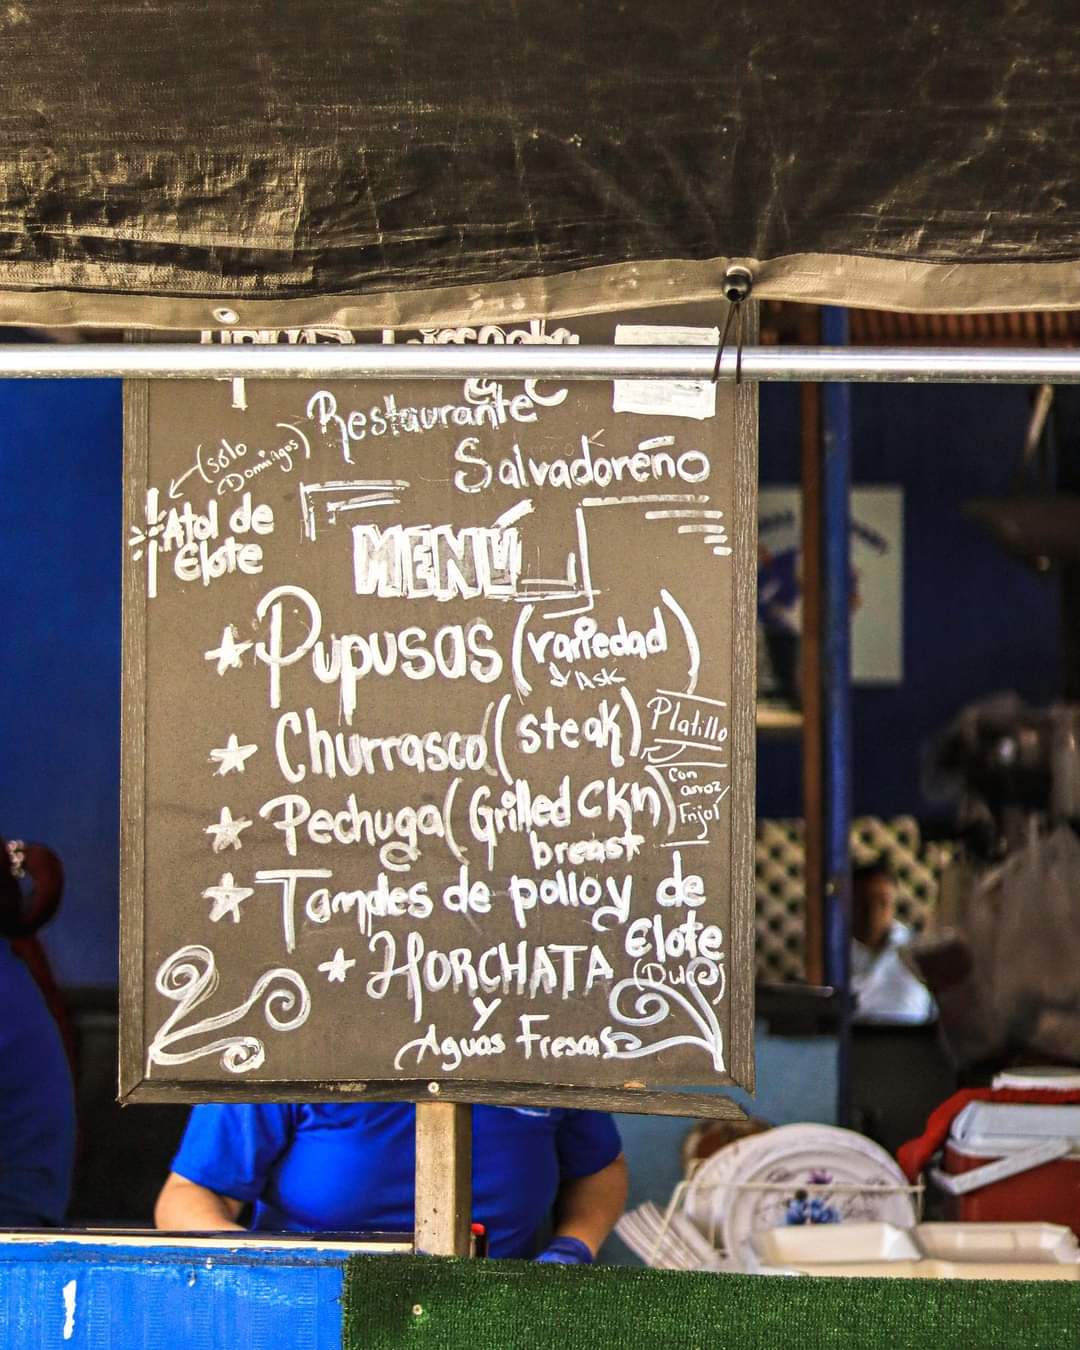 Restaurante
Salvadoreño
(solo
Domingos)
Atol de
Elote
MENÚ
Pupusas (variedad)
Ask
Churrasco (steak) Platillo
con
arroz
Frijol
Pechuga (Grilled Ckn)
breast
Tamales de pollo y de
Elote
(Dulces)
HORCHATA
y
Aguas Frescas